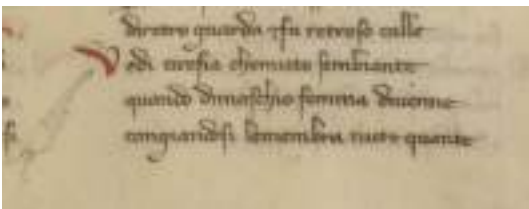 diretro guarda ⁊ fa retroso calle
Vedi tiresia chemuto sembiante
quando dimaschio femina diuenne
cangiandosi lemembra tutte quante